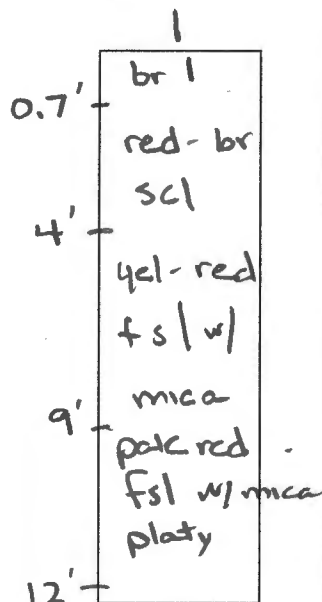 1
br l
0.7'
red-br
scl
4'
yel-red
fsl w/
mica
9'
pale red
fsl w/ mica
platy
12'